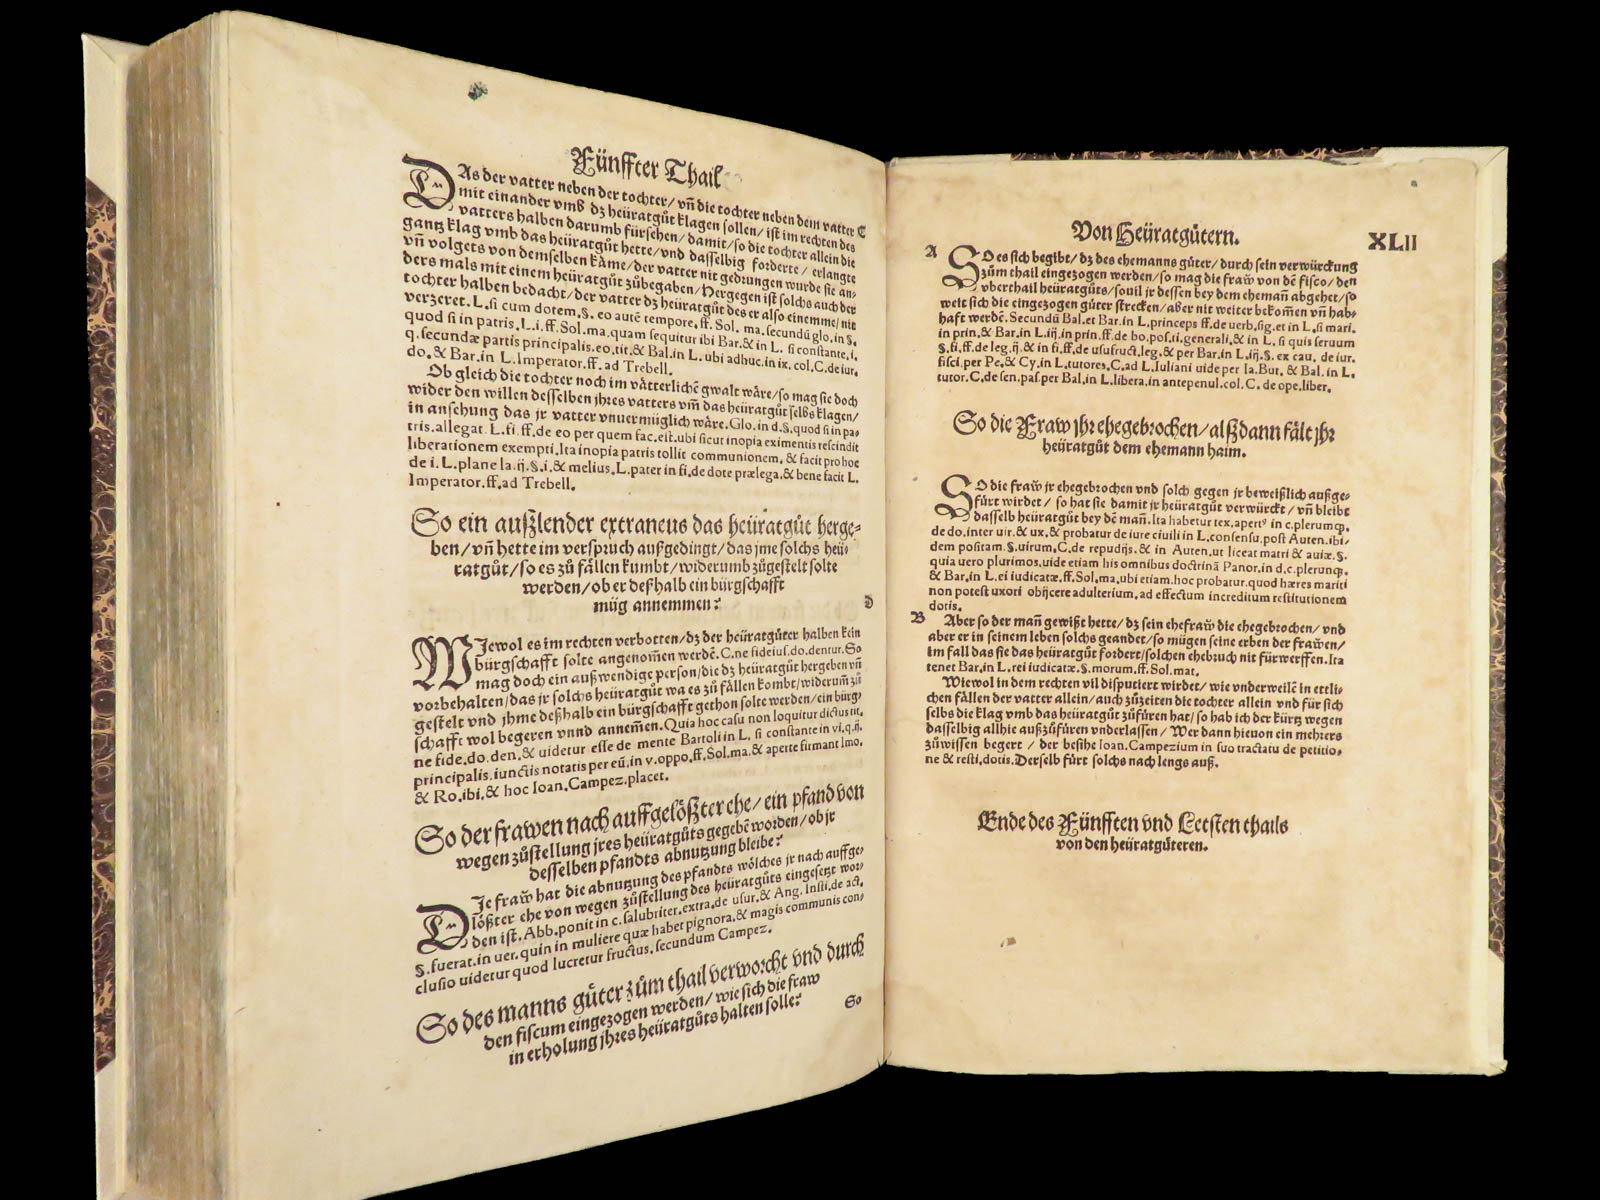 Fünffter Thail
DAs der vatter neben der tochter/ vñ die tochter neben dem vatter C
mit einander vmb dz heüratgůt klagen sollen/ ist im rechten des
vatters halben darumb fürsehen/ damit/ so die tochter allein die
gantz klag vmb das heüratgůt hette/ vnd dasselbig forderte/ erlangte
vñ volgets von demselben käme/ der vatter nit gedrungen wurde sie an-
ders mals mit einem heüratgůt zůbegaben/ Hergegen ist solchs auch der
tochter halben bedacht/ der vatter dz heüratgůt des er also einemme/ nit
verzeret. L. si cum dotem. §. eo autē tempore. ff. Sol. ma. secundū glo. in §.
quod si in patris. L. i. ff. Sol. ma. quam sequitur ibi Bar. & in L. si constante. i.
q. secundæ partis principalis. eo. tit. & Bal. in L. ubi adhuc. in ix. col. C. de iur.
do. & Bar. in L. Imperator. ff. ad Trebell.
Ob gleich die tochter noch im vätterlichē gwalt wäre/ so mag sie doch
wider den willen desselben jhres vatters vm̄ das heüratgůt selbs klagen/
in ansehung das jr vatter vnuermüglich wäre. Glo. in d. §. quod si in pa-
tris. allegat. L. fi. ff. de eo per quem fac. eit. ubi sicut inopia eximentis rescindit
liberationem exempti. Ita inopia patris tollit communionem. & facit pro hoc
de i. L. plane la. ij. §. i. & melius. L. pater in fi. de dote prælega. & bene facit L.
Imperator. ff. ad Trebell.
So ein außlender extraneus das heüratgůt herge-
ben/ vñ hette im verspruch außgedingt/ das jme solchs heü-
ratgůt/ so es zů fällen kumbt/ widerumb zůgestelt solte
werden/ ob er deßhalb ein bürgschafft
müg annemmen? D
WIewol es im rechten verbotten/ dz der heüratgüter halben kein
bürgschafft solte angenom̄en werdē. C. ne fideius. do. dentur. So
mag doch ein außwendige person/ die dz heüratgůt hergeben vñ
vorbehalten/ das jr solchs heüratgůt wa es zů fällen kombt/ widerum̄ zů
gestelt vnd jhme deßhalb ein bürgschafft gethon solte werden/ ein bürg-
schafft wol begeren vnnd annem̄en. Quia hoc casu non loquitur dictus tit.
ne fide. do. den. & uidetur esse de mente Bartoli in L. si constante in vi. q. ij.
principalis. iunctis notatis per eū. in v. oppo. ff. Sol. ma. & aperte firmant Imo.
& Ro. ibi. & hoc Ioan. Campez. placet.
So der frawen nach auffgelößter ehe/ ein pfand von
wegen zůstellung jres heüratgůts gegebē worden/ ob jr
desselben pfandts abnutzung bleibe?
DIe fraw̄ hat die abnutzung des pfandts wölches jr nach auffge-
lößter ehe von wegen zůstellung des heüratgůts eingesetzt wor-
den ist. Abb. ponit in c. salubriter. extra. de usur. & Ang. Insti. de act.
§. fuerat. in uer. quin in muliere quæ habet pignora. & magis communis con-
clusio uidetur quod lucretur fructus. secundum Campez.
So des manns güter zům thail verworcht vnd durch
den fiscum eingezogen werden/ wie sich die fraw
in erholung jhres heüratgůts halten solle?
So
Von Heüratgütern. XLII
A SO es sich begibt/ dz des ehemanns güter/ durch sein verwürckung
zům thail eingezogen werden/ so mag die fraw̄ von dē fisco/ den
vberthail heüratgůts/ souil jr dessen bey dem ehemañ abgehet/ so
weit sich die eingezogen güter strecken/ aber nit weiter bekom̄en vñ hab-
hafft werdē. Secundū Bal. et Bar. in L. princeps ff. de uerb. sig. et in L. si mari.
in prin. & Bar. in L. iij. in prin. ff. de bo. pos. ti. generali. & in L. si quis seruum
§. fi. ff. de leg. ij. & in fi. ff. de usufruct. leg. & per Bar. in L. iij. §. ex cau. de iur.
fisci. per Pe. & Cy. in L. tutores. C. ad L. Iuliani uide per Ia. But. & Bal. in L.
tutor. C. de sen. pas. per Bal. in L. libera. in antepenul. col. C. de ope. liber.
So die Fraw jhr ehegebrochen/ alßdann fält jhr
heüratgůt dem ehemann haim.
SO die fraw̄ jr ehegebrochen vnd solch gegen jr beweißlich außge-
fürt wirdet/ so hat sie damit jr heüratgůt verwürckt/ vñ bleibt
dasselb heüratgůt bey dē mañ. Ita habetur tex. apert⁹ in c. plerumq;.
de do. inter uir. & ux. & probatur de iure ciuili in L. consensu. post Auten. ibi-
dem positam. §. uirum. C. de repudijs. & in Auten. ut liceat matri & auiæ. §.
quia uero plurimos. uide etiam his omnibus doctrinā Panor. in d. c. plerunq;.
& Bar. in L. ei iudicatæ. ff. Sol. ma. ubi etiam. hoc probatur. quod hæres mariti
non potest uxori obijcere adulterium. ad effectum increditum restitutionem
dotis.
B Aber so der mañ gewißt hette/ dz sein ehefraw̄ die ehegebrochen/ vnd
aber er in seinem leben solchs geandet/ so mügen seine erben der fraw̄en/
im fall das sie das heüratgůt fordert/ solchen ehebruch nit fürwerffen. Ita
tenet Bar. in L. rei iudicatæ. §. morum. ff. Sol. mat.
Wiewol in dem rechten vil disputiert wirdet/ wie vnderweilē in ettli-
chen fällen der vatter allein/ auch zůzeiten die tochter allein vnd für sich
selbs die klag vmb das heüratgůt zůfüren hat/ so hab ich der kürtz wegen
dasselbig allhie außzůfüren vnderlassen/ Wer dann hieuon ein mehrers
zůwissen begert/ der besihe Ioan. Campezium in suo tractatu de petitio-
ne & resti. dotis. Derselb fürt solchs nach lengs auß.
Ende des Fünfften vnd Letsten thails
von den heüratgüteren.